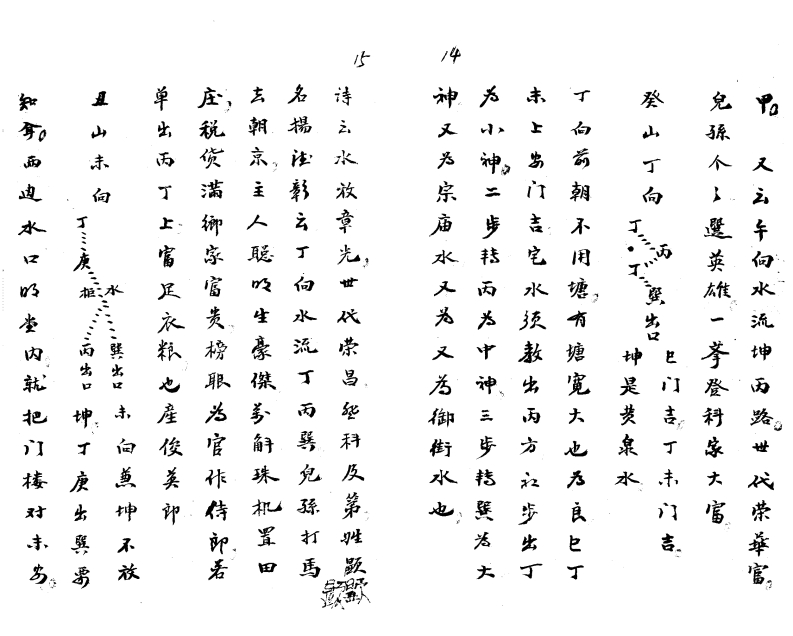 14
甲。又云午向水流坤丙路。世代荣華富。
兒孫个々選英雄一举登科家大富
癸山丁向
丁
丙
丁
巽出口
巳门吉丁未门吉
坤是黄泉水
丁向前朝不用塘。有塘寬大也为良巳丁
未上安门吉宅水须教出丙方初步出丁
为小神。二步转丙为中神三步转巽为大
神又为宗庙水又为又為御街水也。
15
诗云水放章光。世代荣昌登科及第姓顕
名揚
彰云丁向水流丁丙巽兒孫打馬
去朝京。主人聪明生豪傑万斛珠机置田
庄。税货满鄉家富贵榜眼为官作侍郎。若
单出丙丁上富足衣粮也産俊英郎
丑山未向
丁
庚
水
巽出口
丙出口
未向兼坤不放
坤丁庚出巽要
知
两边水口明堂内就把门楼对未安。